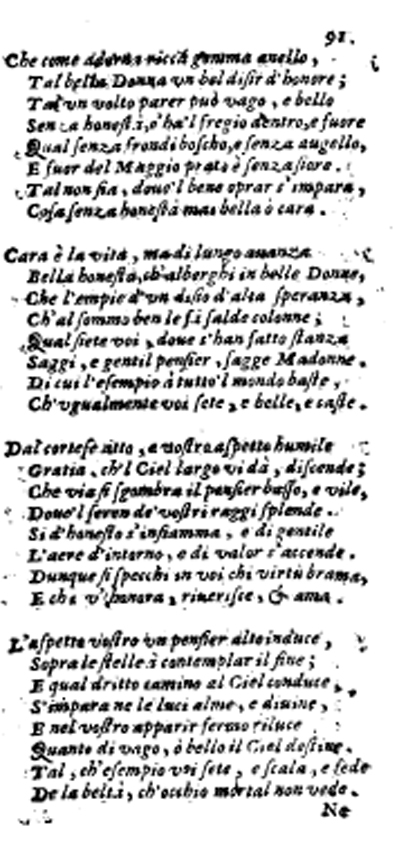 91.
Che come adorna ricca gemma anello,
Tal bella Donna vn bel disir d'honore;
Tal vn volto parer può vago, e bello
Senza honestà, c'ha'l fregio dentro, e fuore
Qual senza frondi bosco, e senza augello,
E fuor del Maggio prato è senza fiore.
Tal non sia, doue'l bene oprar s'impara,
Cosa senza honestà mai bella ò cara.
Cara è la vita, ma di lungo auanza
Bella honestà, ch'alberghi in belle Donne,
Che l'empie d'vn disio d'alta speranza,
Ch'al sommo ben le fà salde colonne;
Qual siete voi, doue s'han fatto stanza
Saggi, e gentil pensier, sagge Madonne.
Di cui l'esempio à tutto'l mondo baste,
Ch'vgualmente voi sete, e belle, e caste.
Dal cortese atto, a vostro aspetto humile
Gratia, ch'l Ciel largo vi dà, discende;
Che via si sgombra il pensier basso, e vile,
Doue'l seren de' vostri raggi splende.
Si d'honesto s'infiamma, e di gentile
L'aere d'intorno, e di valor s'accende.
Dunque si specchi in voi chi virtù brama,
E chi v'honora, riuerisce, & ama.
L'aspetto vostro vn pensier alto induce,
Sopra le stelle à contemplar il fine;
E qual dritto camino al Ciel conduce,
S'impara ne le luci alme, e diuine,
E nel vostro apparir fermo riluce
Quanto di vago, ò bello il Ciel destine.
Tal, ch'esempio voi sete, e scala, e fede
De la beltà, ch'occhio mortal non vede.
Ne